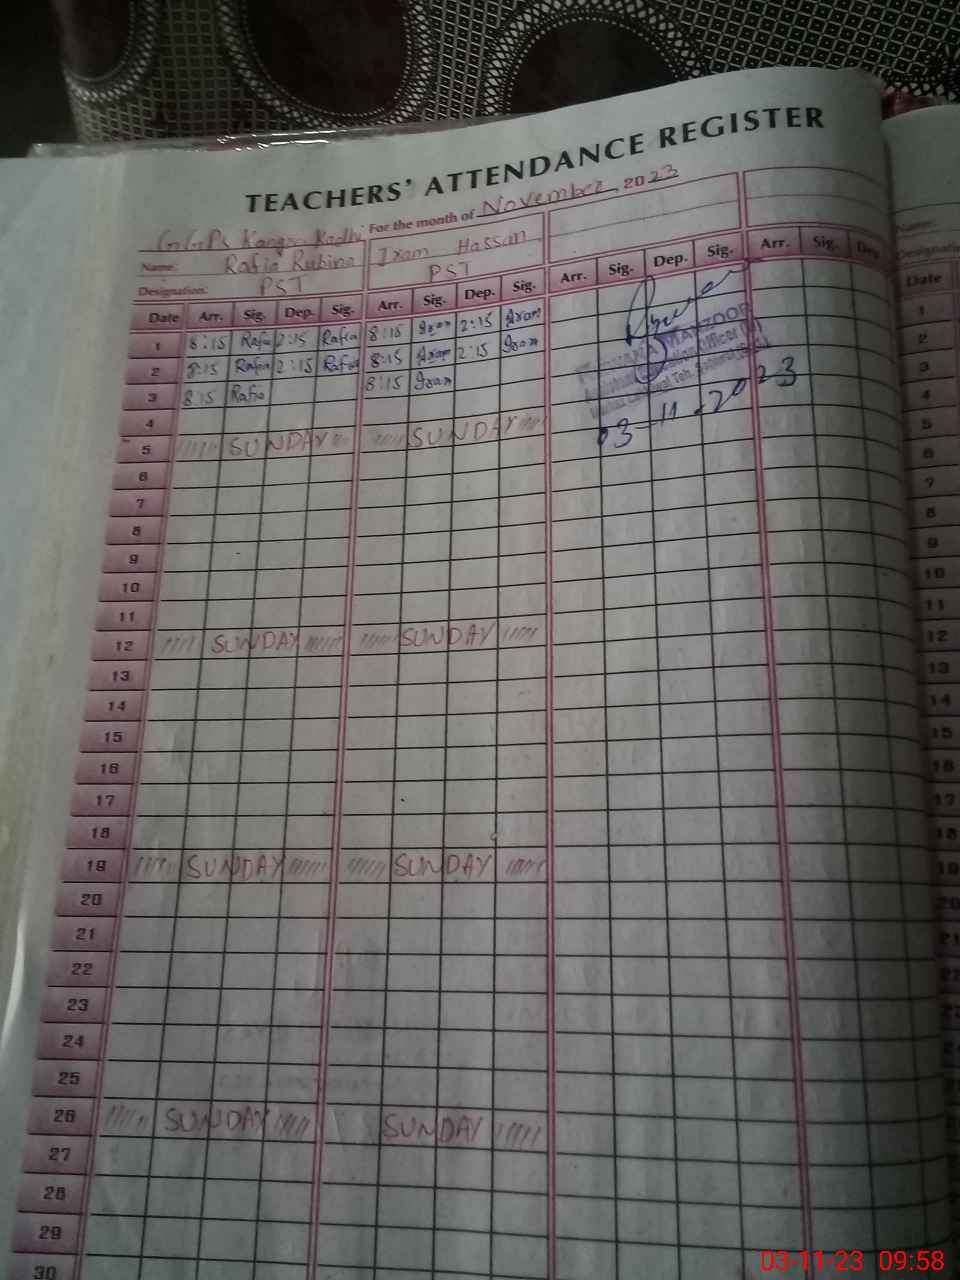 TEACHERS' ATTENDANCE REGISTER
GGPS For the month of November 2023
Name: Rafia Rubina Iram Hassan
Designation: PST PST
Date Arr. Sig. Dep. Sig. Arr. Sig. Dep. Sig. Arr. Sig. Dep. Sig. Arr. Sig. Dep.
1 8:15 Rafia 2:15 Rafia 8:15 Iram 2:15 Iram
2 8:15 Rafia 2:15 Rafia 8:15 Iram 2:15 Iram
3 8:15 Rafia 8:15 Iram
4
5 SUNDAY SUNDAY
6
7
8
9
10
11
12 SUNDAY SUNDAY
13
14
15
16
17
18
19 SUNDAY SUNDAY
20
21
22
23
24
25
26 SUNDAY SUNDAY
27
28
29
30
MANZOOR
Officer
03-11-2023
Name:
Designation
Date
1
2
3
4
5
6
7
8
9
10
11
12
13
14
15
16
17
18
19
20
03-11-23 09:58